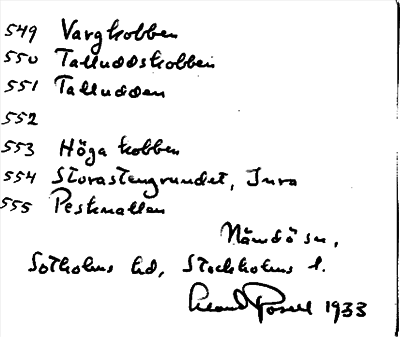 549 Vargkobben
550 Talluddskobben
551 Talludden
552
553 Höga kobben
554 Storastengrundet, Inra
555 Pesknallen
Nämdö sn,
Sotholms hd, Stockholms l.
1933